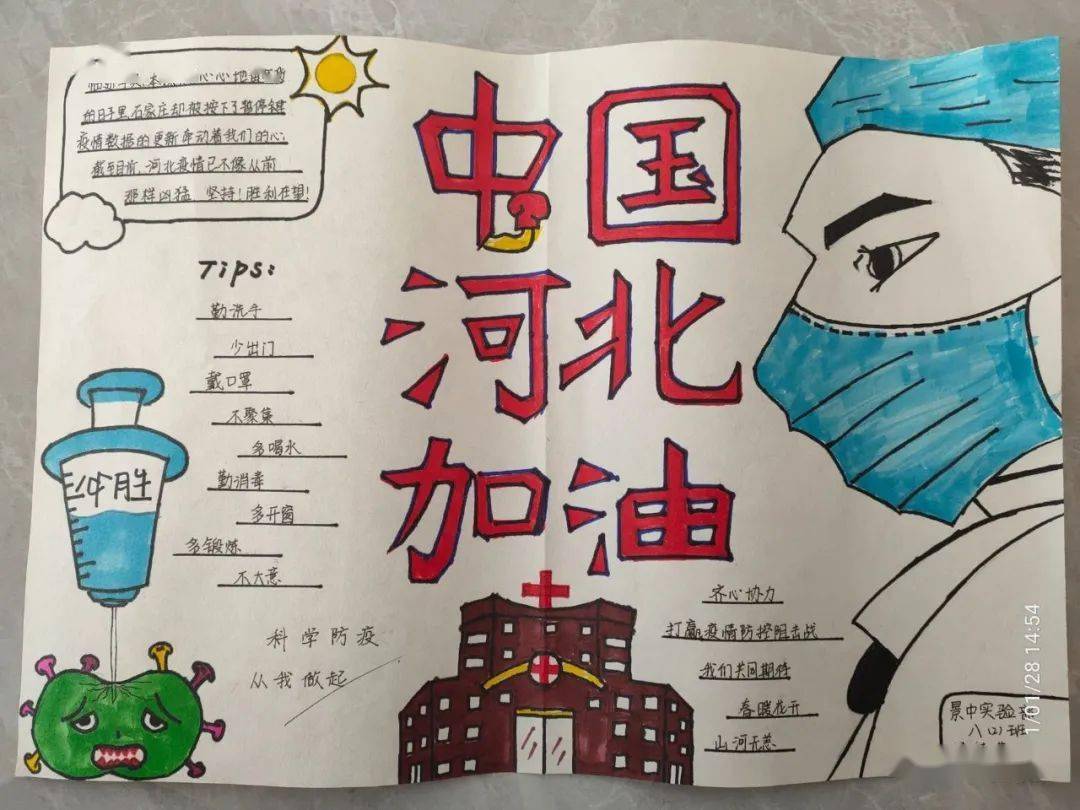 的日子里石家庄却被按下了暂停键
疫情数据的更新牵动着我们的心:
截至目前,河北疫情已不像从前
那样凶猛 坚持!胜利在望!
中国
河北
加油
Tips:
勤洗手
少出门
戴口罩
不聚集
多喝水
勤消毒
多开窗
多锻炼
不大意
科学防疫
从我做起
胜
齐心协力
打赢疫情防控阻击战
我们共同期待
春暖花开
山河无恙
景中实验
八(2)班
1/01/28 14:54